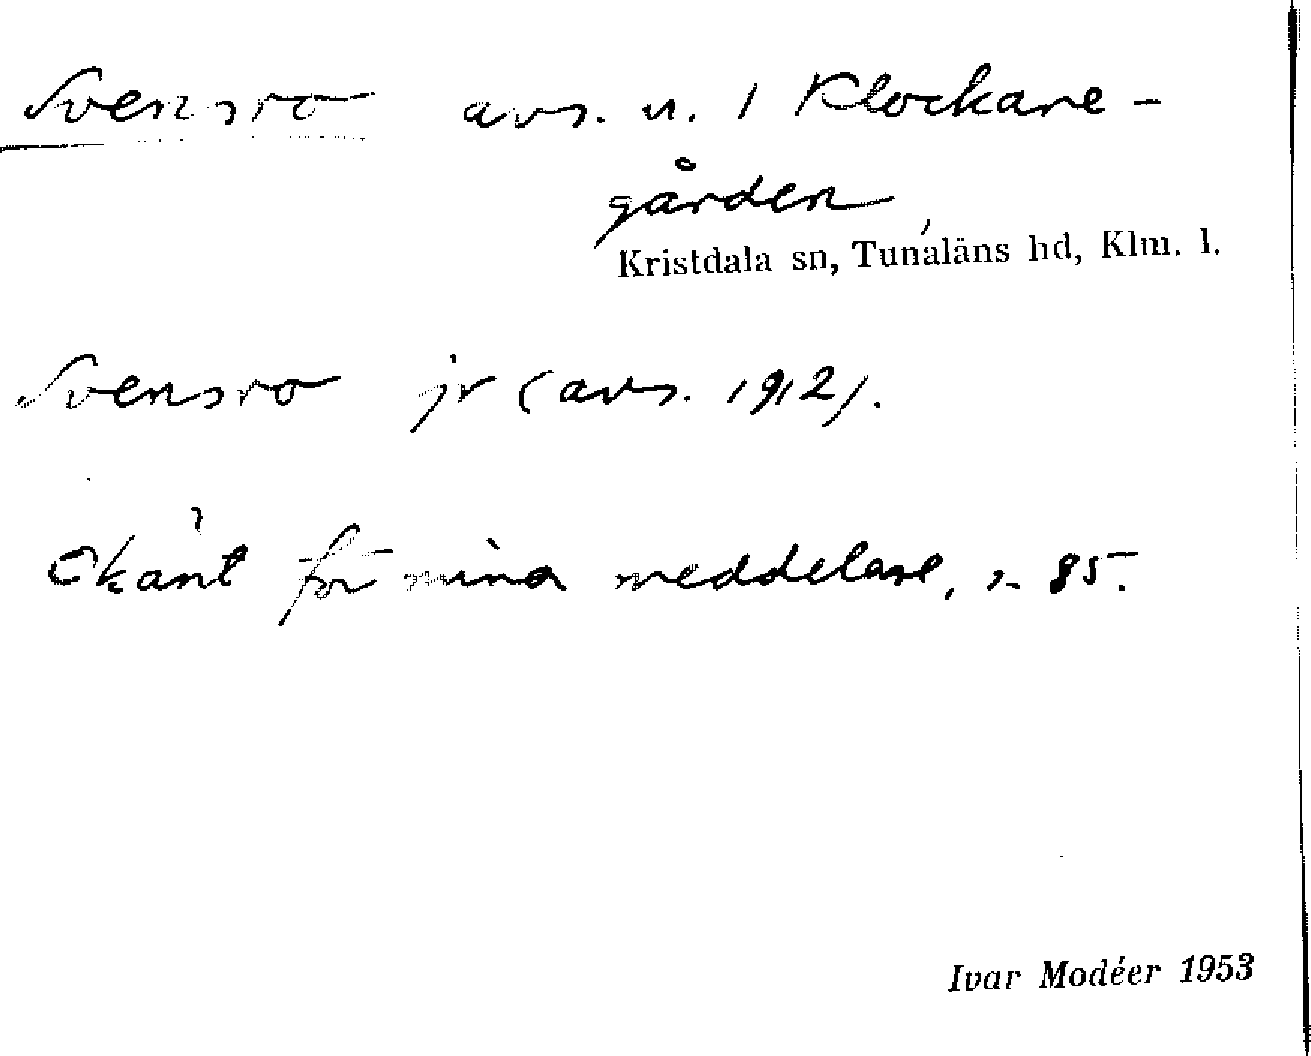 Svensro avs. u. 1 Klockare-
gården
Kristdala sn, Tunaläns hd, Klm. l.
Svensro jr (avs. 1912).
Okänt för mina meddelare, s. 85.
Ivar Modéer 1953